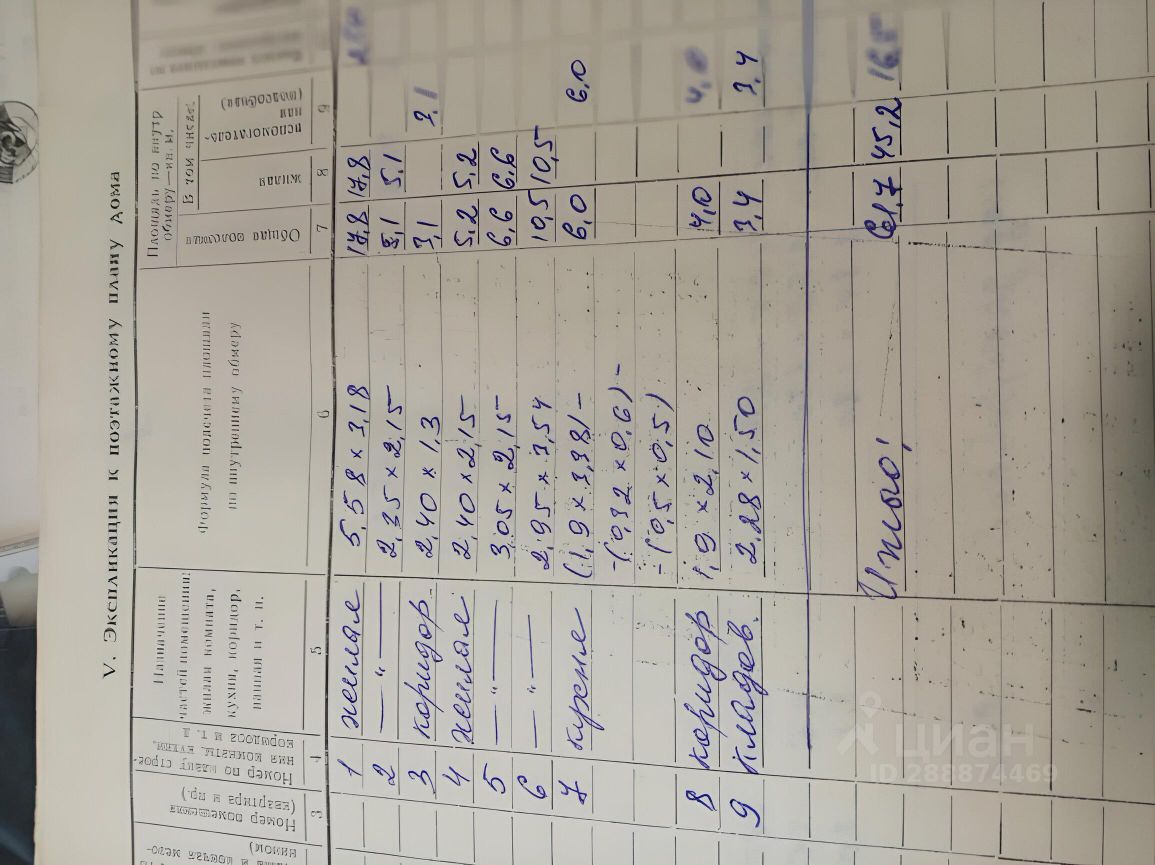 V. Экспликация к поэтажному плану дома
Номер помещения (квартира и пр.)
Номер по плану строения комнаты, кухни, коридора и т. д.
Назначение частей помещений: жилая комната, кухни, коридор, ванная и т. п.
Формула подсчета площади по внутреннему обмеру
Площадь по внутр. обмеру—кв. м.
Общая полезная
В том числе:
жилая
вспомогательная (подсобная)
3 4 5 6 7 8 9
1 жилая 5,58 x 3,18 17,8 17,8
2 —"— 2,35 x 2,15 5,1 5,1
3 коридор 2,40 x 1,3 3,1 3,1
4 жилая 2,40 x 2,15 5,2 5,2
5 —"— 3,05 x 2,15 6,6 6,6
6 —"— 2,95 x 3,54 10,5 10,5
7 кухня (1,9 x 3,38) – 6,0 6,0
-(0,32 x 0,6) –
-(0,5 x 0,5)
8 коридор 1,9 x 2,10 4,0 4,0
9 кладов. 2,28 x 1,50 3,4 3,4
Итого: 61,7 45,2
циан
ID 288874469